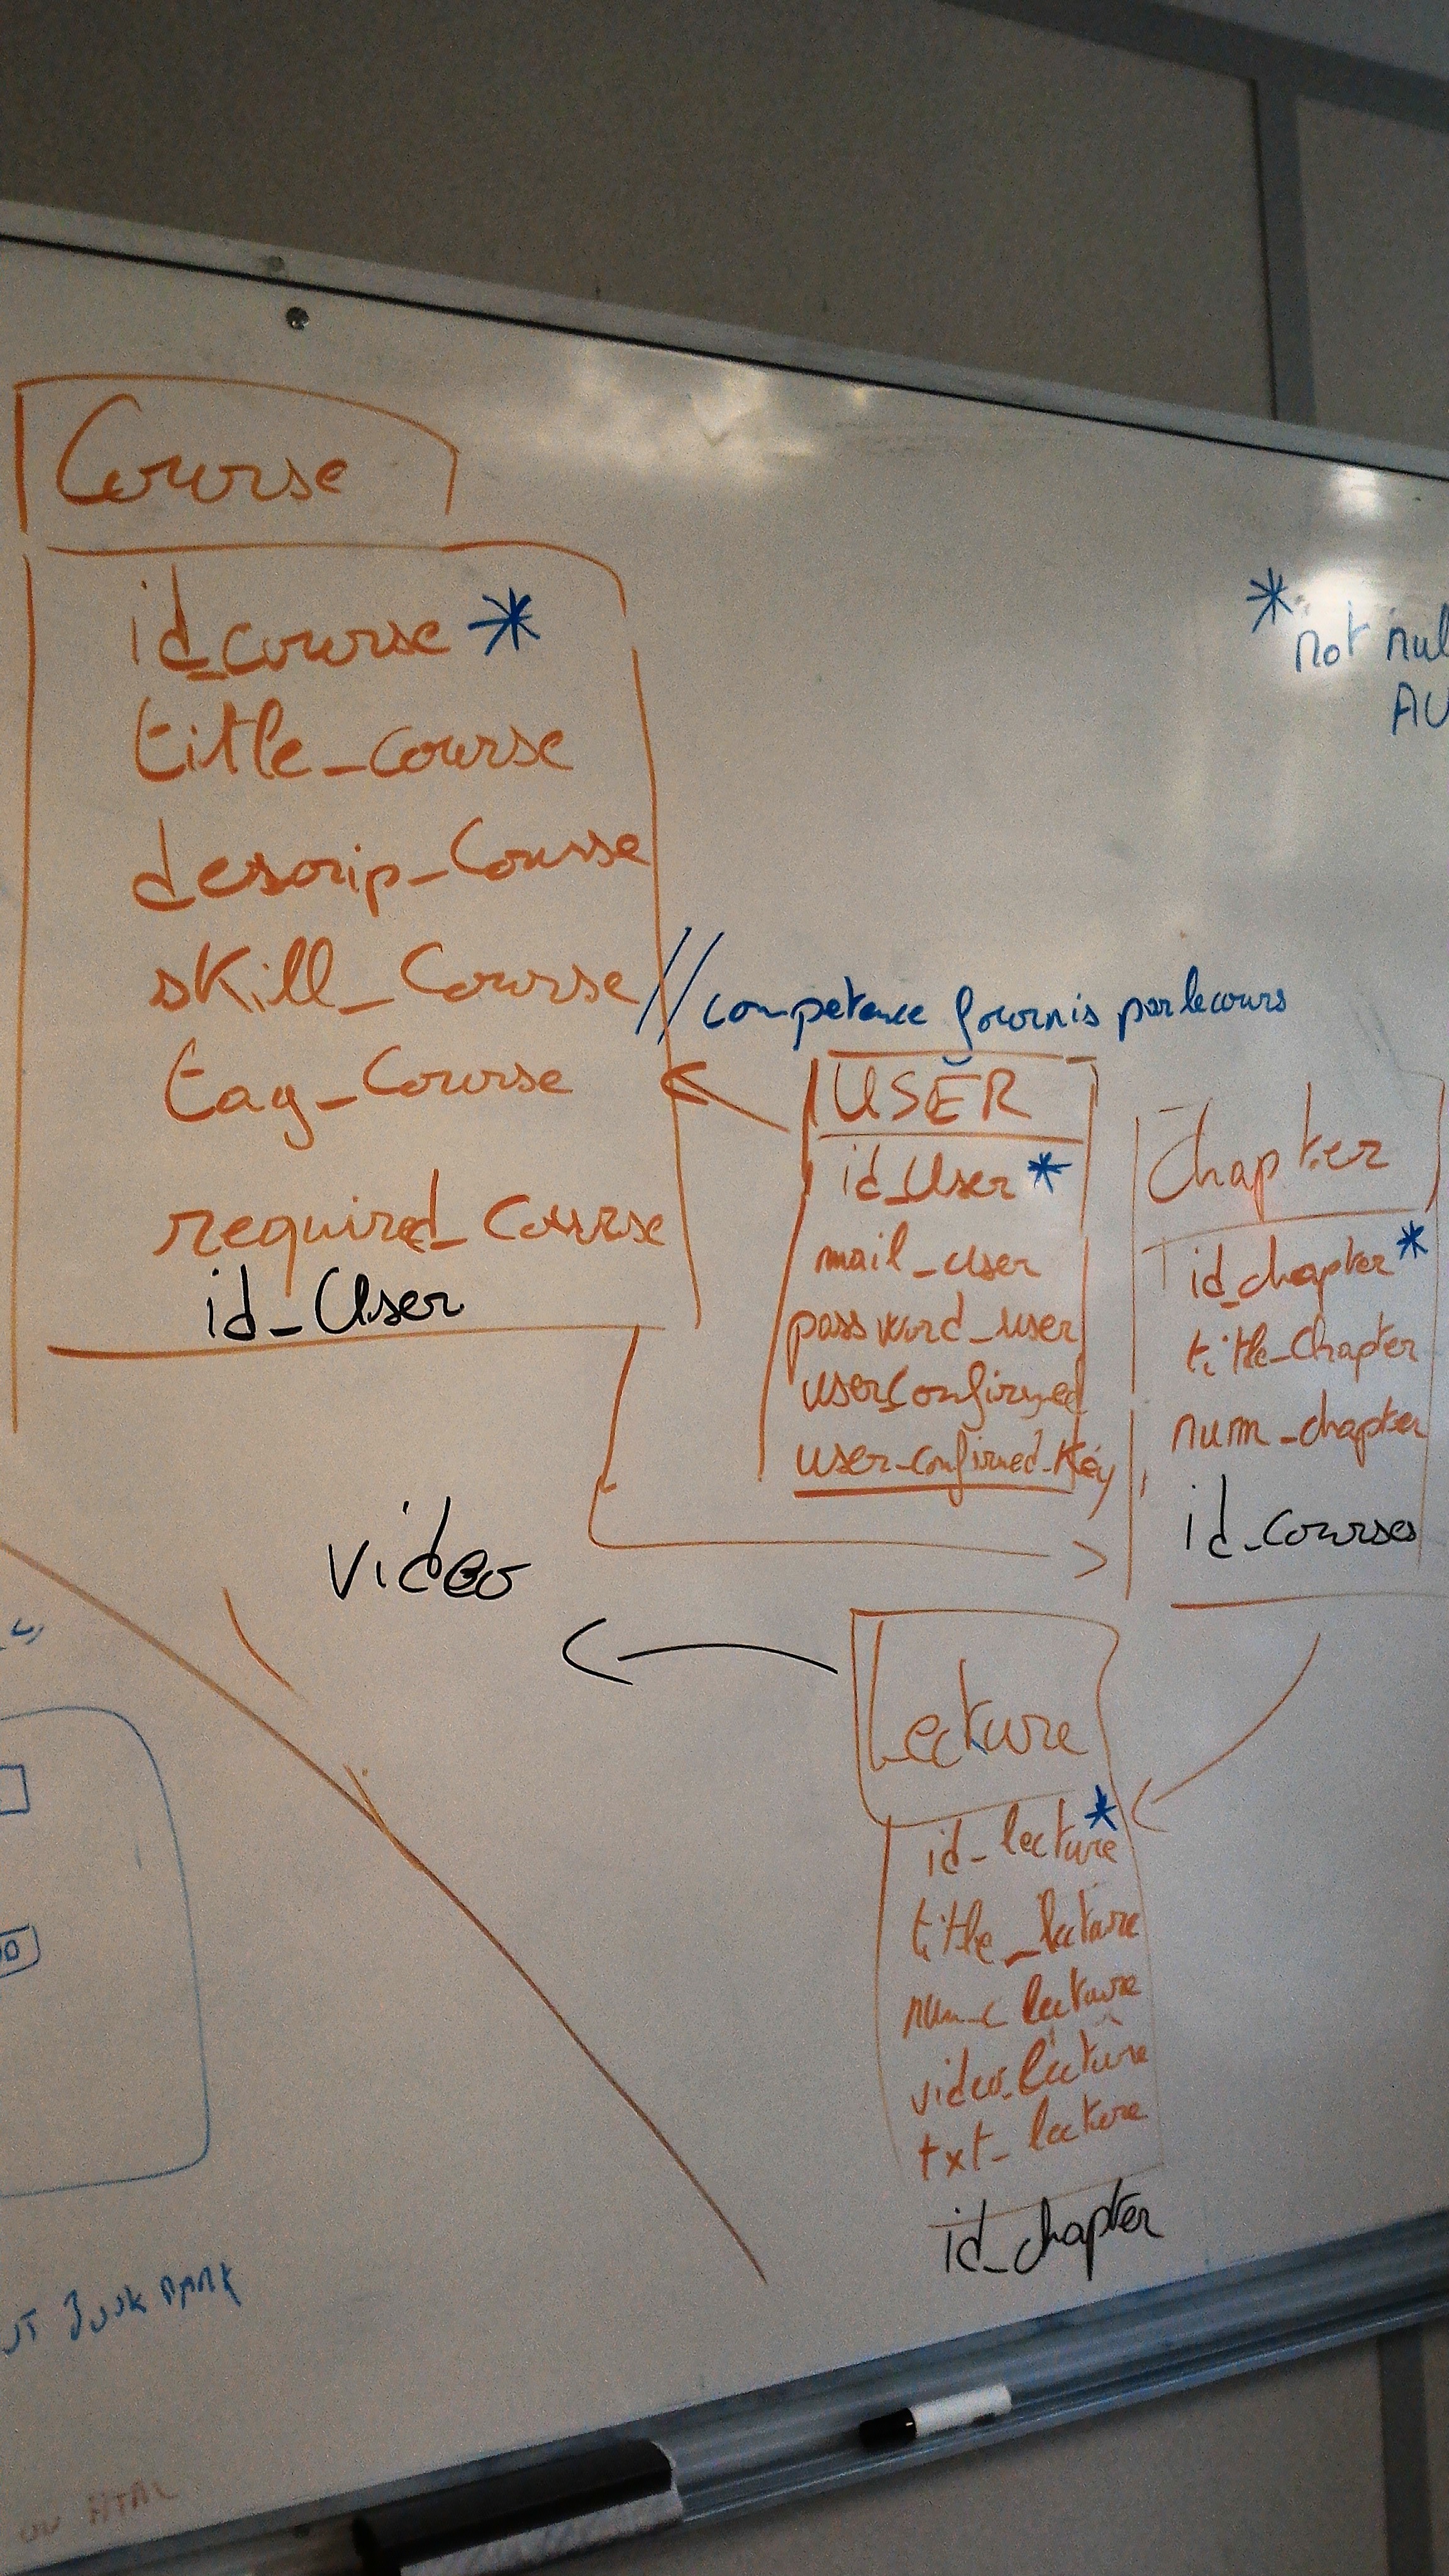 Course
id_course *
title_course
descrip_Course
skill_Course // compétence fournis par le cours
tag_Course
required_Course
id_User
* not nul
AU
USER
id_User *
mail_user
password_user
user_Confirmed
user_confirmed_Key
Chapter
id_chapter *
title_Chapter
num_chapter
id_courses
video
Lecture
id_lecture *
title_lecture
lecture
video_lecture
txt_lecture
id_chapter
HTML